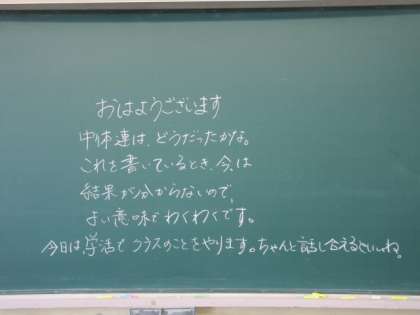 おはようございます
中体連は、どうだったかな。
これを書いているとき、今は
結果が分からないので、
よい意味でわくわくです。
今日は、学活でクラスのことをやります。ちゃんと話し合えるといいね。